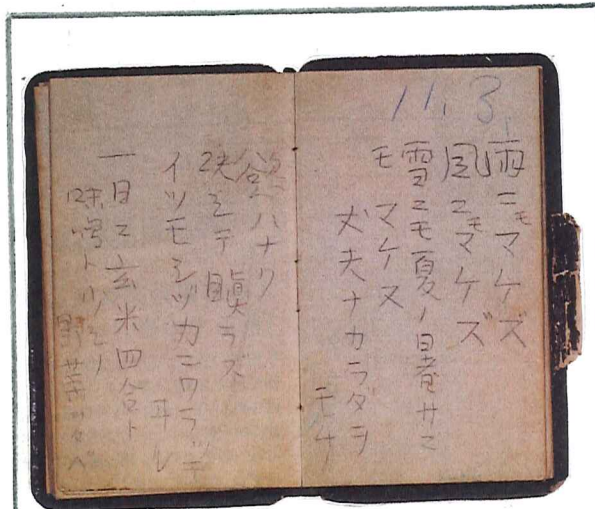 11, 3,
雨ニモマケズ
風ニモマケズ
雪ニモ夏ノ暑サニ
モ マケヌ
丈夫ナカラダヲ
モチ
慾ハナク
決シテ瞋ラズ
イツモシヅカニワラッテ
ヰル
一日ニ玄米四合ト
味噌ト少シノ
野菜ヲタベ